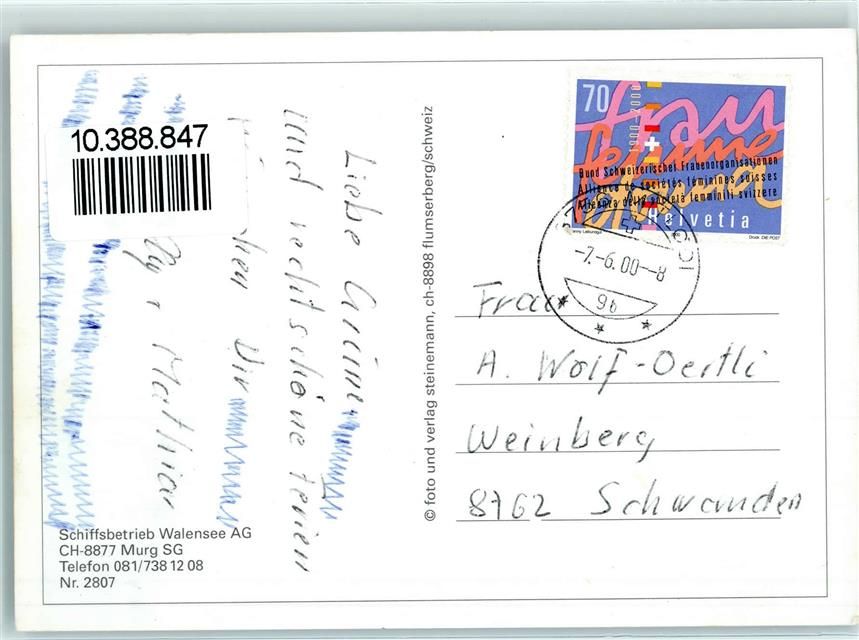 10.388.847
Liebe Grüsse
und recht schöne Ferien
Dir
+ Mathias
Schiffsbetrieb Walensee AG
CH-8877 Murg SG
Telefon 081/738 12 08
Nr. 2807
© foto und verlag steinemann, ch-8898 flumserberg/schweiz
70
1900-2000
frau
femme
Bund Schweizerischer Frauenorganisationen
Alliance de sociétés féminines suisses
Alleanza delle società femminili svizzere
Helvetia
Druck: DIE POST
-7.-6.00--8
Frau
A. Wolf-Oertli
Weinberg
8762 Schwanden